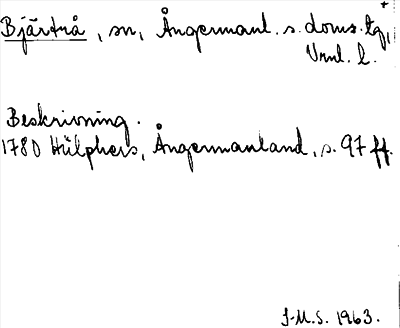 Bjärtrå, sn, Ångermanl. s. doms. tg,
Vrml. l.
Beskrivning.
1780 Hülphers, Ångermanland, s. 97 ff.
J.M.S. 1963.